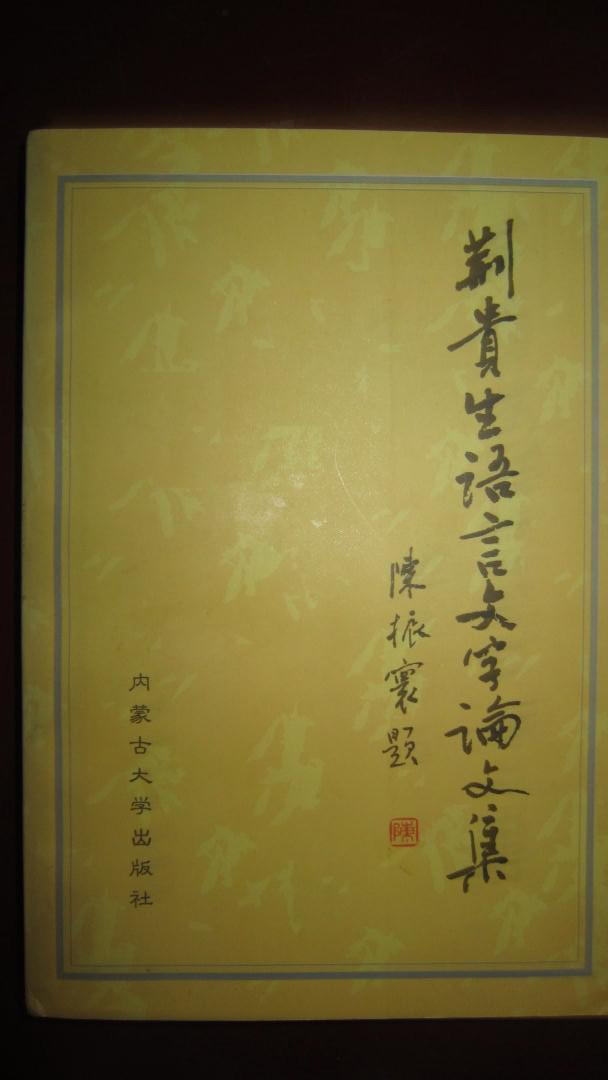 荆貴生語言文字論文集
陳振寰題
陳
内蒙古大学出版社